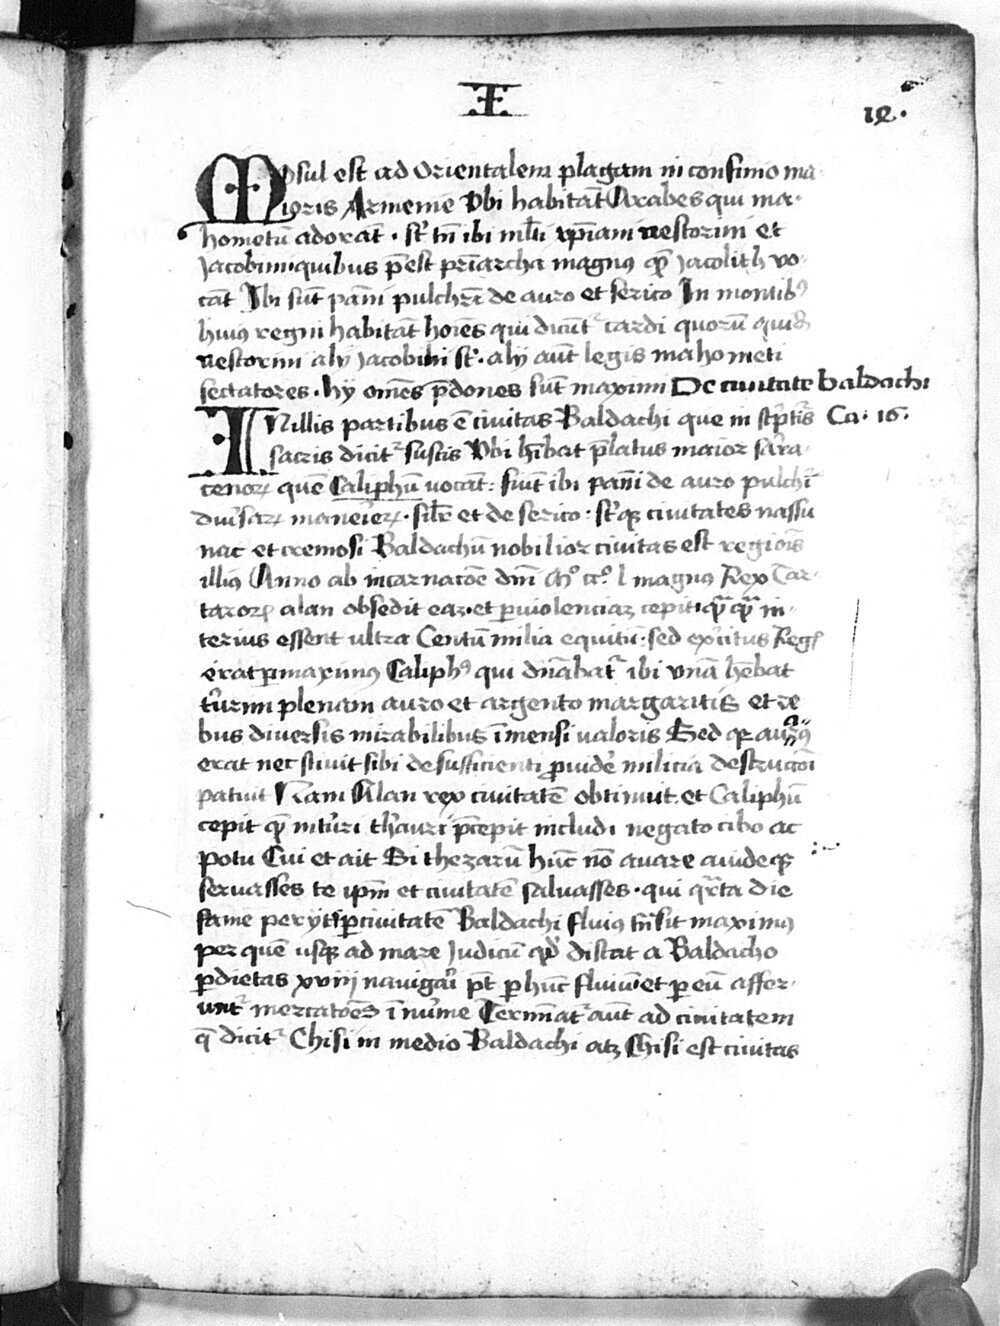 I
12.
Mosul est ad Orientalem plagam in confinio ma
ioris Armenie Vbi habitāt Arabes qui ma-
hometū adorāt · st' tn̄ ibi ml'ti xp̄iani nestorini et
Jacobini quibus p̄est pr̄iarcha magnus quē Jacolith vo-
cāt Ibi sūt pāni pulchri de auro et serico In montibus
huius regni habitāt hoīes qui dicūt' cardi quorū quidā
nestorini alij Jacobini st' · alij aūt legis mahometi
sectatores · hij om̄es p̄dones sūt maximi De ciuitate baldachi
IN illis partibus ē ciuitas Baldachi que in sc'ptur̄is Ca · 16 ·
sacris dicit' susis Vbi hītat p̄latus maior sarra
cenorꝝ quē Caliphū vocāt : fiūt ibi pāni de auro pulch'i
diu'sarꝝ manerierꝝ · sil'r et de serico : st'qꝫ ciuitates nassu
nac et cremosi Baldachū nobilior ciuitas est regiōis
illius Anno ab incarnacōe dn̄i Mº ccº l magnus Rex Tar-
tarorꝝ alan obsedit eaꝫ · et p violenciaꝫ cepit · qꝫqꝫ in-
terius essent ultra Centū milia equitū · sed ex'citus Regꝭ
erat permaximus Caliphus qui dn̄abat' ibi vnā hēbat
t'rim plenam auro et argento margaritis et re
bus diuersis mirabilibus īmensi valoris Sed qꝫ auarus
erat nec sciuit sibi de sufficienti p̱uide' milicia destructōi
patuit Nam Alan rex ciuitatē obtinuit · et Caliphū
cepit quē in t'ri th'auri p̄cepit includi negato cibo ac
potu Cui et ait Si thezarū hūc nō auare auideqꝫ
seruasses te ip̄m et ciuitatē saluasses · qui qr̄ta die
fame perijt · per ciuitatē Baldachi fluuius tn̄sit maximus
per quē usqꝫ ad mare Indicū qd' distat a Baldacho
per dietas xviij nauigari pt̄ per hūc fluuiū et per eū affer-
unt' mercatōes ī nu'me Termīat' aūt ad ciuitatem
q̄ dicit' Chisi in medio Baldachi atqꝫ Chisi est ciuitas